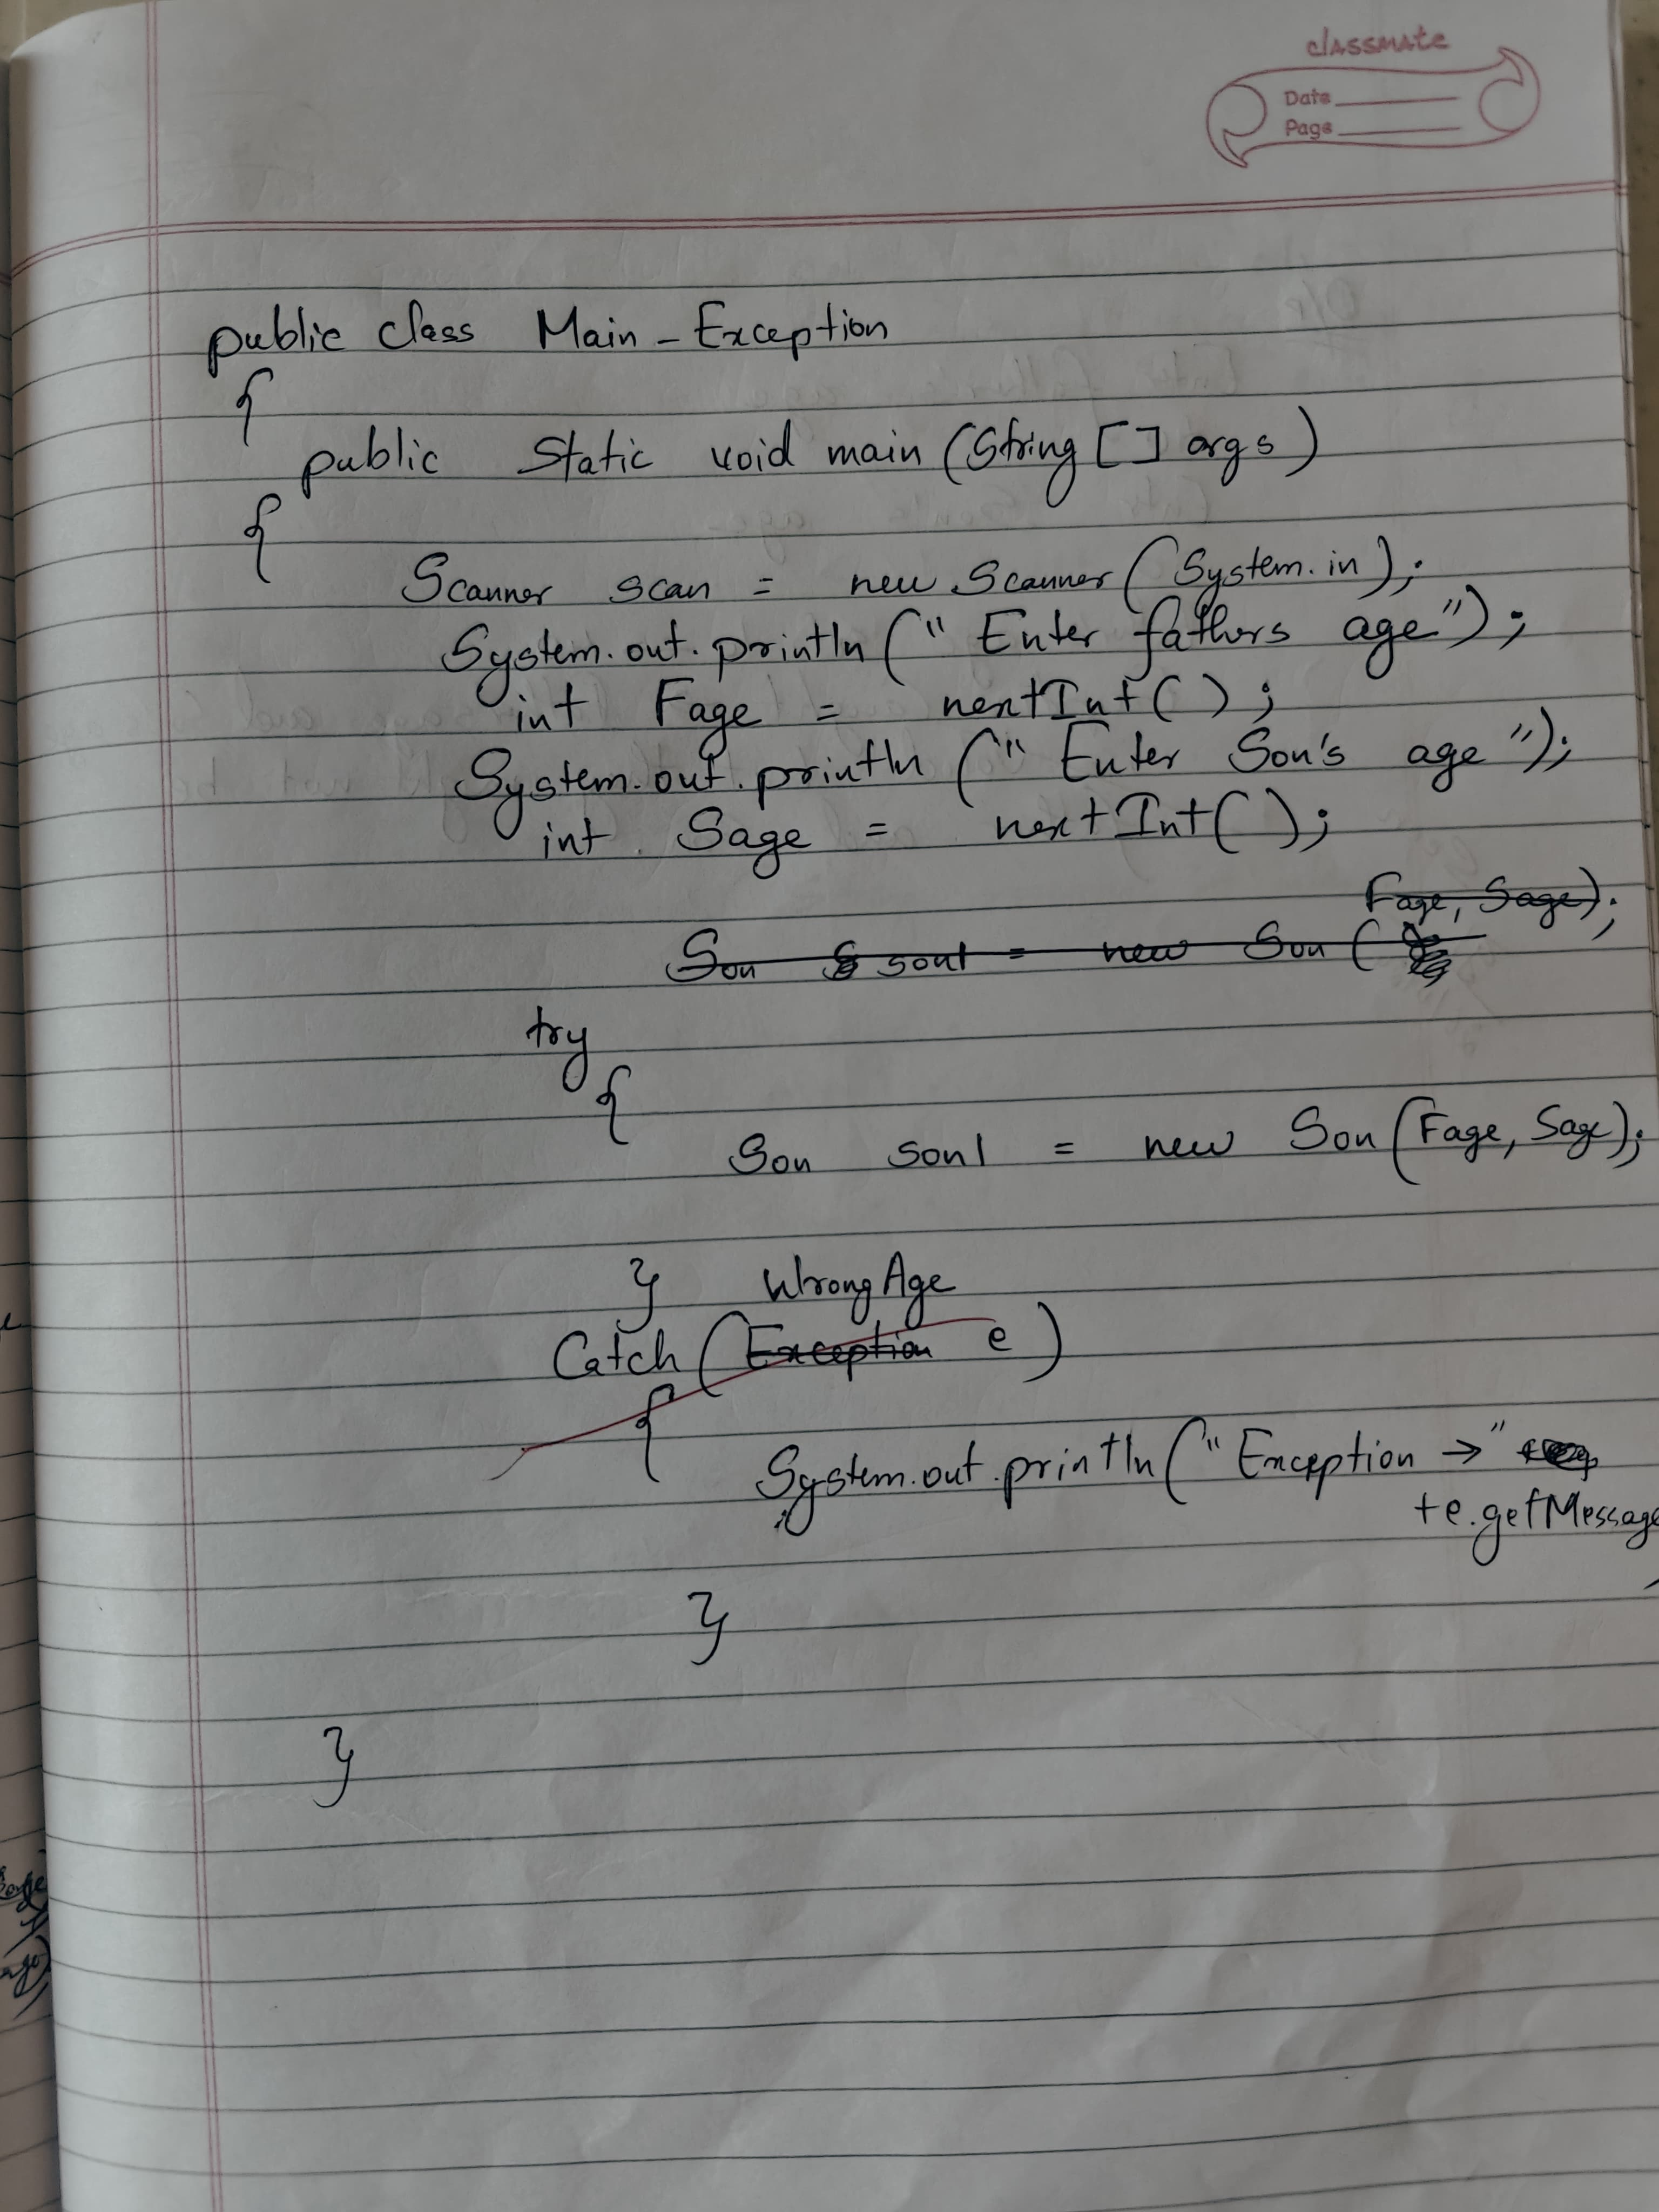 classmate
Date
Page
public class Main_Exception
{
public Static void main (String [] args)
{
Scanner scan = new Scanner (System.in);
System.out.println (" Enter fathers age");
int Fage = nextInt();
System.out.println (" Enter Son's age ");
int Sage = nextInt();
Fage, Sage);
Son son1 = new Son (
try
{
Son son1 = new Son (Fage, Sage);
} WrongAge
Catch (Exception e)
{
System.out.println ("Exception →"
+e.getMessage
}
}